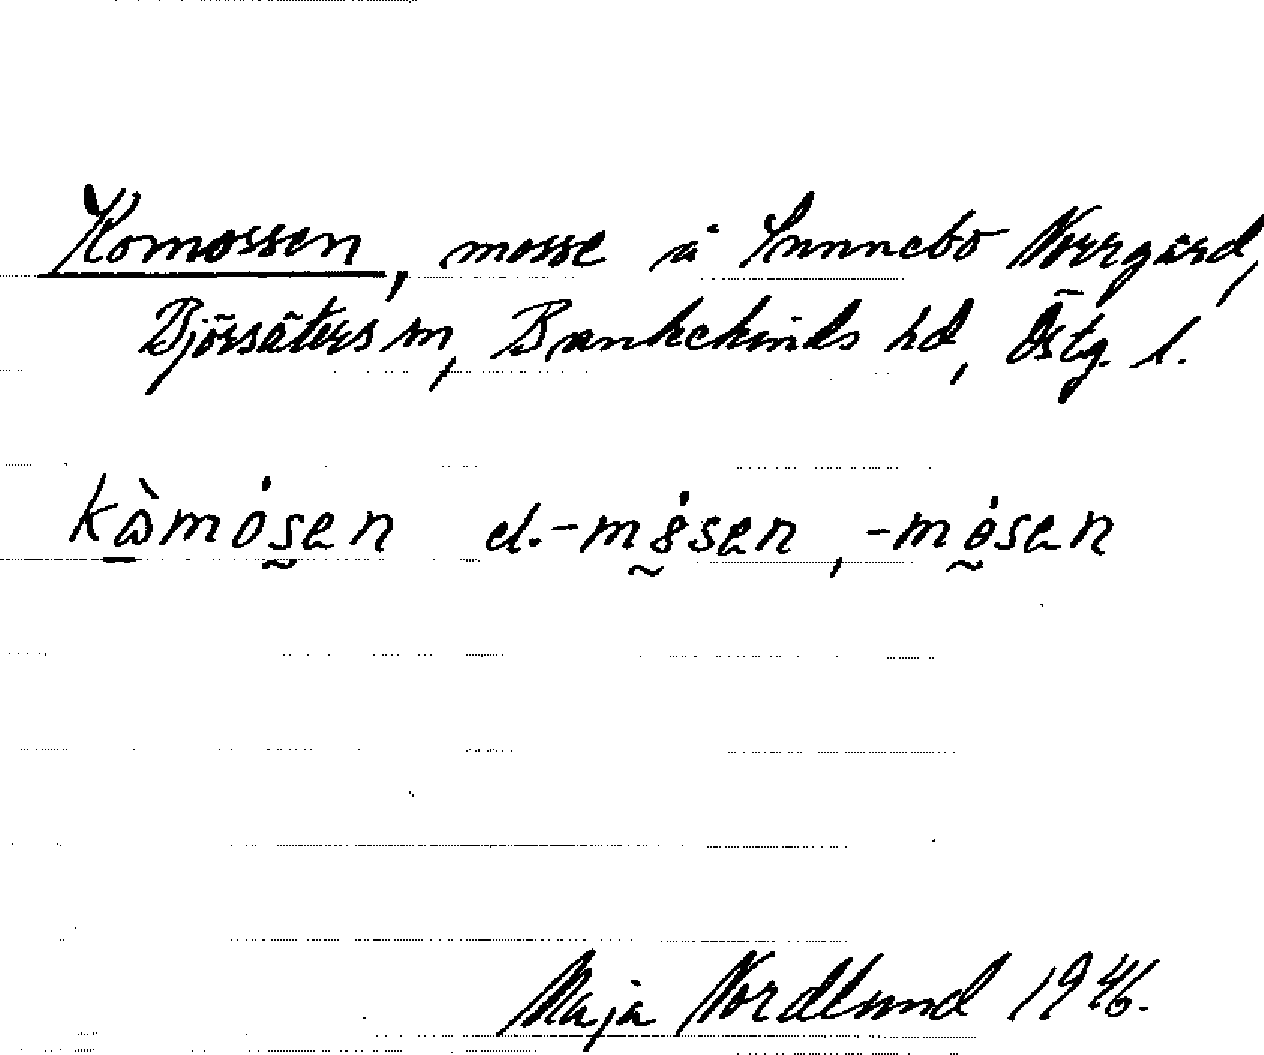 Komossen, mosse å Sunnebo Norrgård,
Björsäters sn, Bankekinds hd, Östg. l.
kàmósen el. -mósen, -mósen
Maja Nordlund 1946.